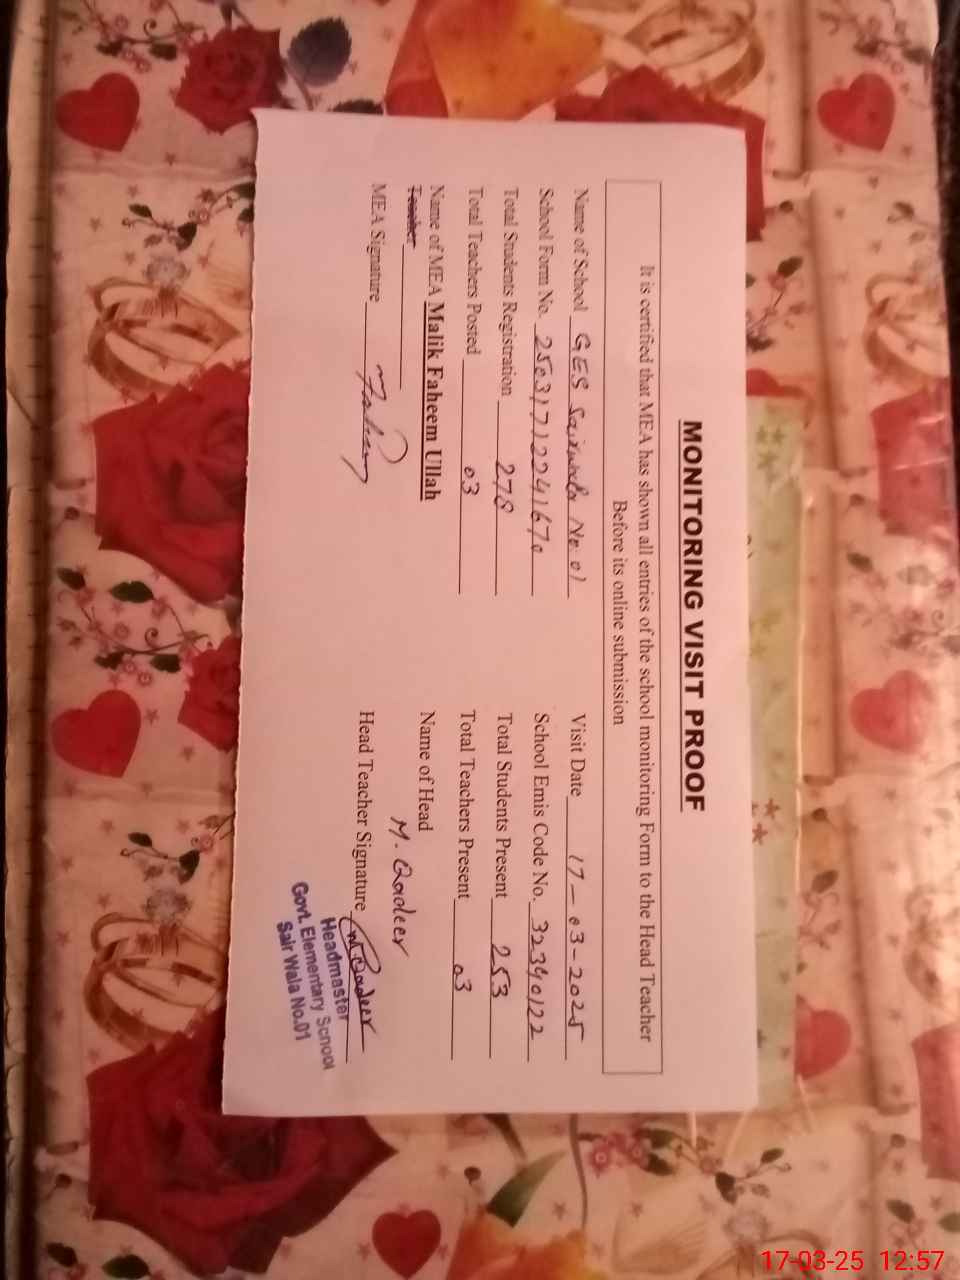 MONITORING VISIT PROOF
It is certified that MEA has shown all entries of the school monitoring Form to the Head Teacher
Before its online submission
Name of School GES Sairwala No. 01 Visit Date 17-03-2025
School Form No. 25031712241670 School Emis Code No. 32340122
Total Students Registration 278 Total Students Present 253
Total Teachers Posted 03 Total Teachers Present 03
Name of MEA Malik Faheem Ullah Name of Head M. Qadeer
Teacher
MEA Signature Faheem Head Teacher Signature M Qadeer
Headmaster
Govt. Elementary School
Sair Wala No.01
17-03-25 12:57